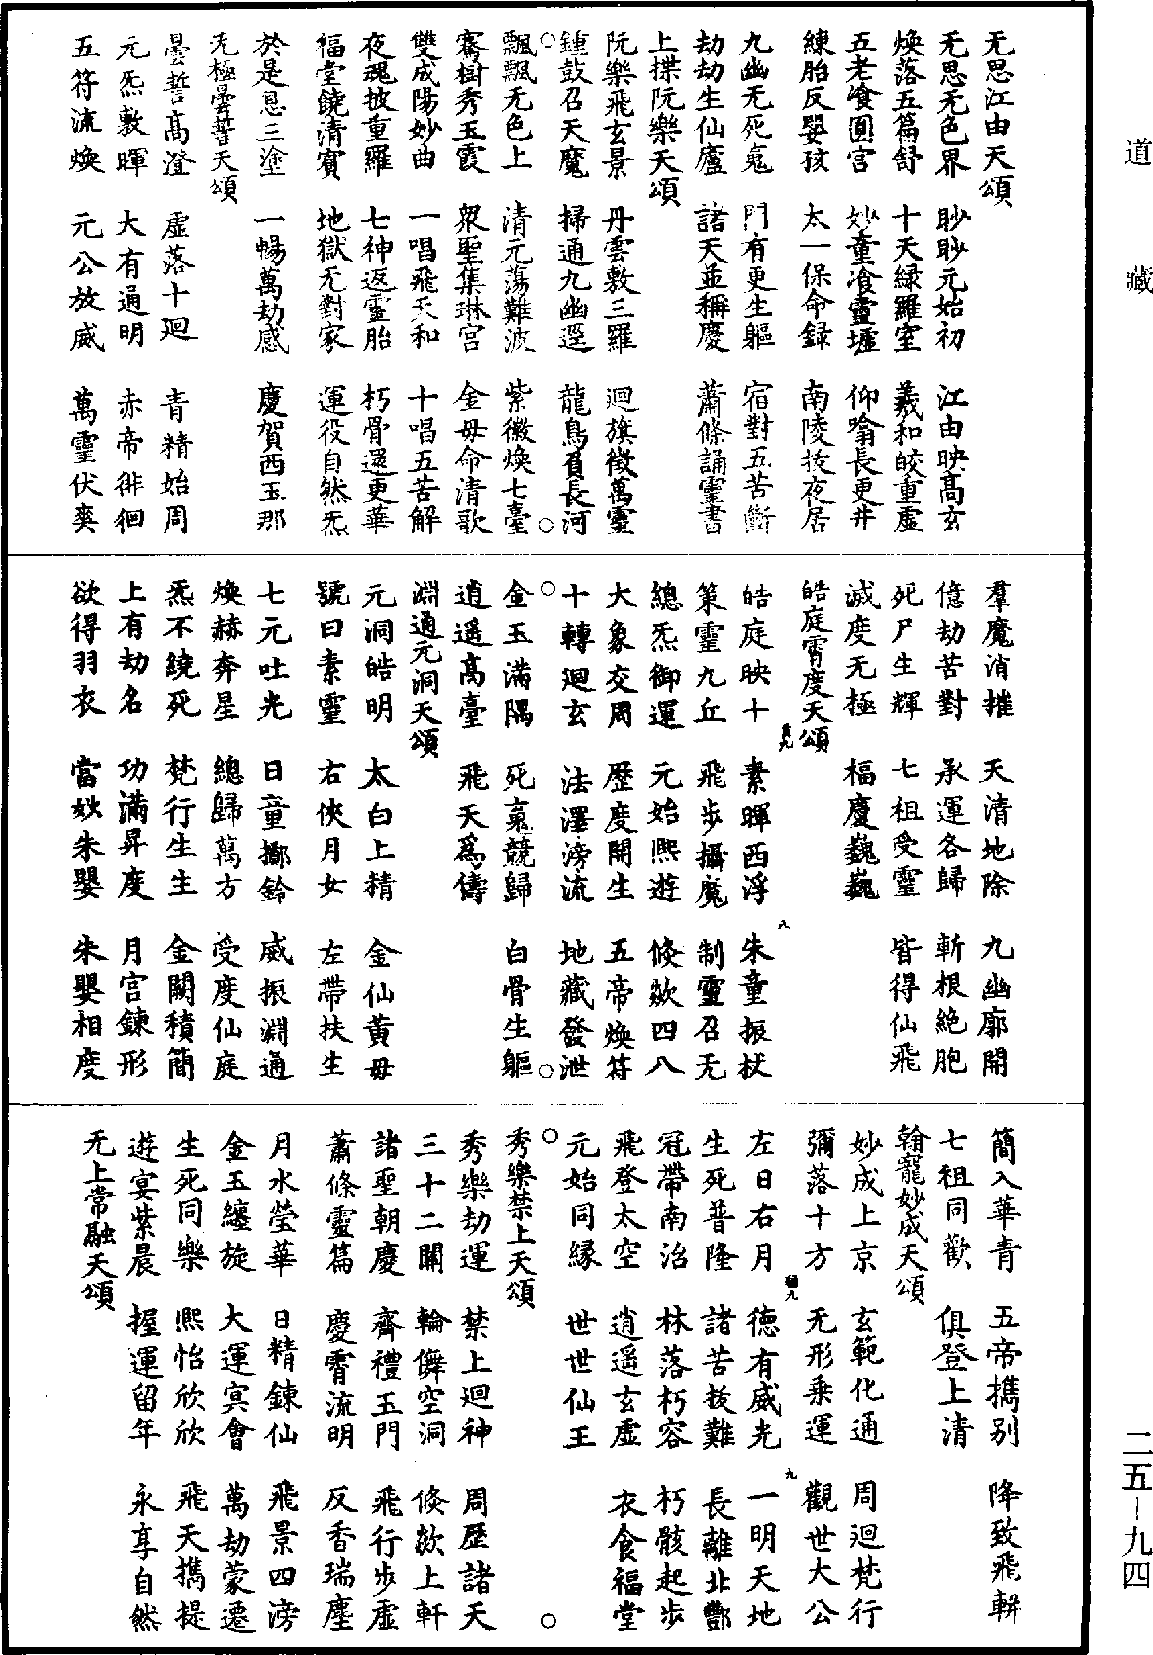 道藏
二五-九四
无思江由天頌
无思无色界 眇眇元始初 江由映高玄
煥落五篇舒 十天綠羅室 羲和皎重虛
五老飡圓宮 妙童飡靈墟 仰噏長更井
練胎反嬰孩 太一保命録 南陵拔夜居
九幽无死䰟 門有更生軀 宿對五苦斷
劫劫生仙廬 諸天並稱慶 蕭條誦靈書
上揲阮樂天頌
阮樂飛玄景 丹雲敷三羅 迴旗徵萬靈
鍾鼓召天魔 掃通九幽逕 龍鳥負長河
飄飄无色上 清元蕩難波 紫微煥七臺
騫樹秀玉霞 衆聖集琳宮 金母命清歌
雙成陽妙曲 一唱飛天和 十唱五苦解
夜魂披重羅 七神返靈胎 朽骨還更華
福堂饒清賓 地獄无對家 運役自然炁
於是息三塗 一暢萬劫感 慶賀西玉那
无極曇誓天頌
曇誓高澄 虛落十迴 青精始周
元炁敷暉 大有通明 赤帝徘徊
五符流煥 元公放威 萬靈伏爽
羣魔消摧 天清地除 九幽廓開
億劫苦對 承運各歸 斬根絕胞
死尸生輝 七祖受靈 皆得仙飛
滅度无極 福慶巍巍
皓庭霄度天頌
皓庭映十 素暉西浮 朱童振杖
策靈九丘 飛步攝魔 制靈召无
總炁御運 元始熙遊 倏欻四八
大象交周 歷度開生 五帝煥符
十轉迴玄 法澤滂流 地藏發泄
金玉滿隅 死䰟競歸 白骨生軀
逍遥高臺 飛天爲儔
淵通元洞天頌
元洞皓明 太白上精 金仙黄母
號曰素靈 右侠月女 左帶扶生
七元吐光 日童擲鈴 威振淵通
煥赫奔星 總歸萬方 受度仙庭
炁不繞死 梵行生生 金闕積簡
上有劫名 功滿昇度 月宮鍊形
欲得羽衣 當妙朱嬰 朱嬰相度
簡入華青 五帝擕別 降致飛軿
七祖同歡 俱登上清
翰寵妙成天頌
妙成上京 玄範化通 周迴梵行
彌落十方 无形乗運 觀世大公
左日右月 德有威光 一明天地
生死普隆 諸苦拔難 長離北酆
冠帶南治 林落朽容 朽骸起步
飛登太空 逍遥玄虛 衣食福堂
元始同緣 世世仙王
秀樂禁上天頌
秀樂劫運 禁上迴神 周歷諸天
三十二關 輪儛空洞 倏欻上軒
諸聖朝慶 齊禮玉門 飛行步虛
蕭條靈篇 慶霄流明 反香瑞塵
月水瑩華 日精鍊仙 飛景四滂
金玉纏旋 大運冥會 萬劫蒙遷
生死同樂 熙怡欣欣 飛天擕提
遊宴紫晨 握運留年 永享自然
无上常融天頌